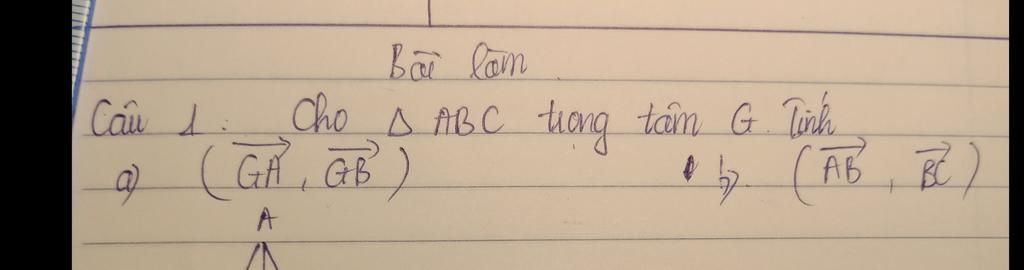 Bài làm
Câu 1: Cho Δ ABC trọng tâm G. Tính
a) (\overrightarrow{GA}, \overrightarrow{GB}) b). (\overrightarrow{AB}, \overrightarrow{BC})
A